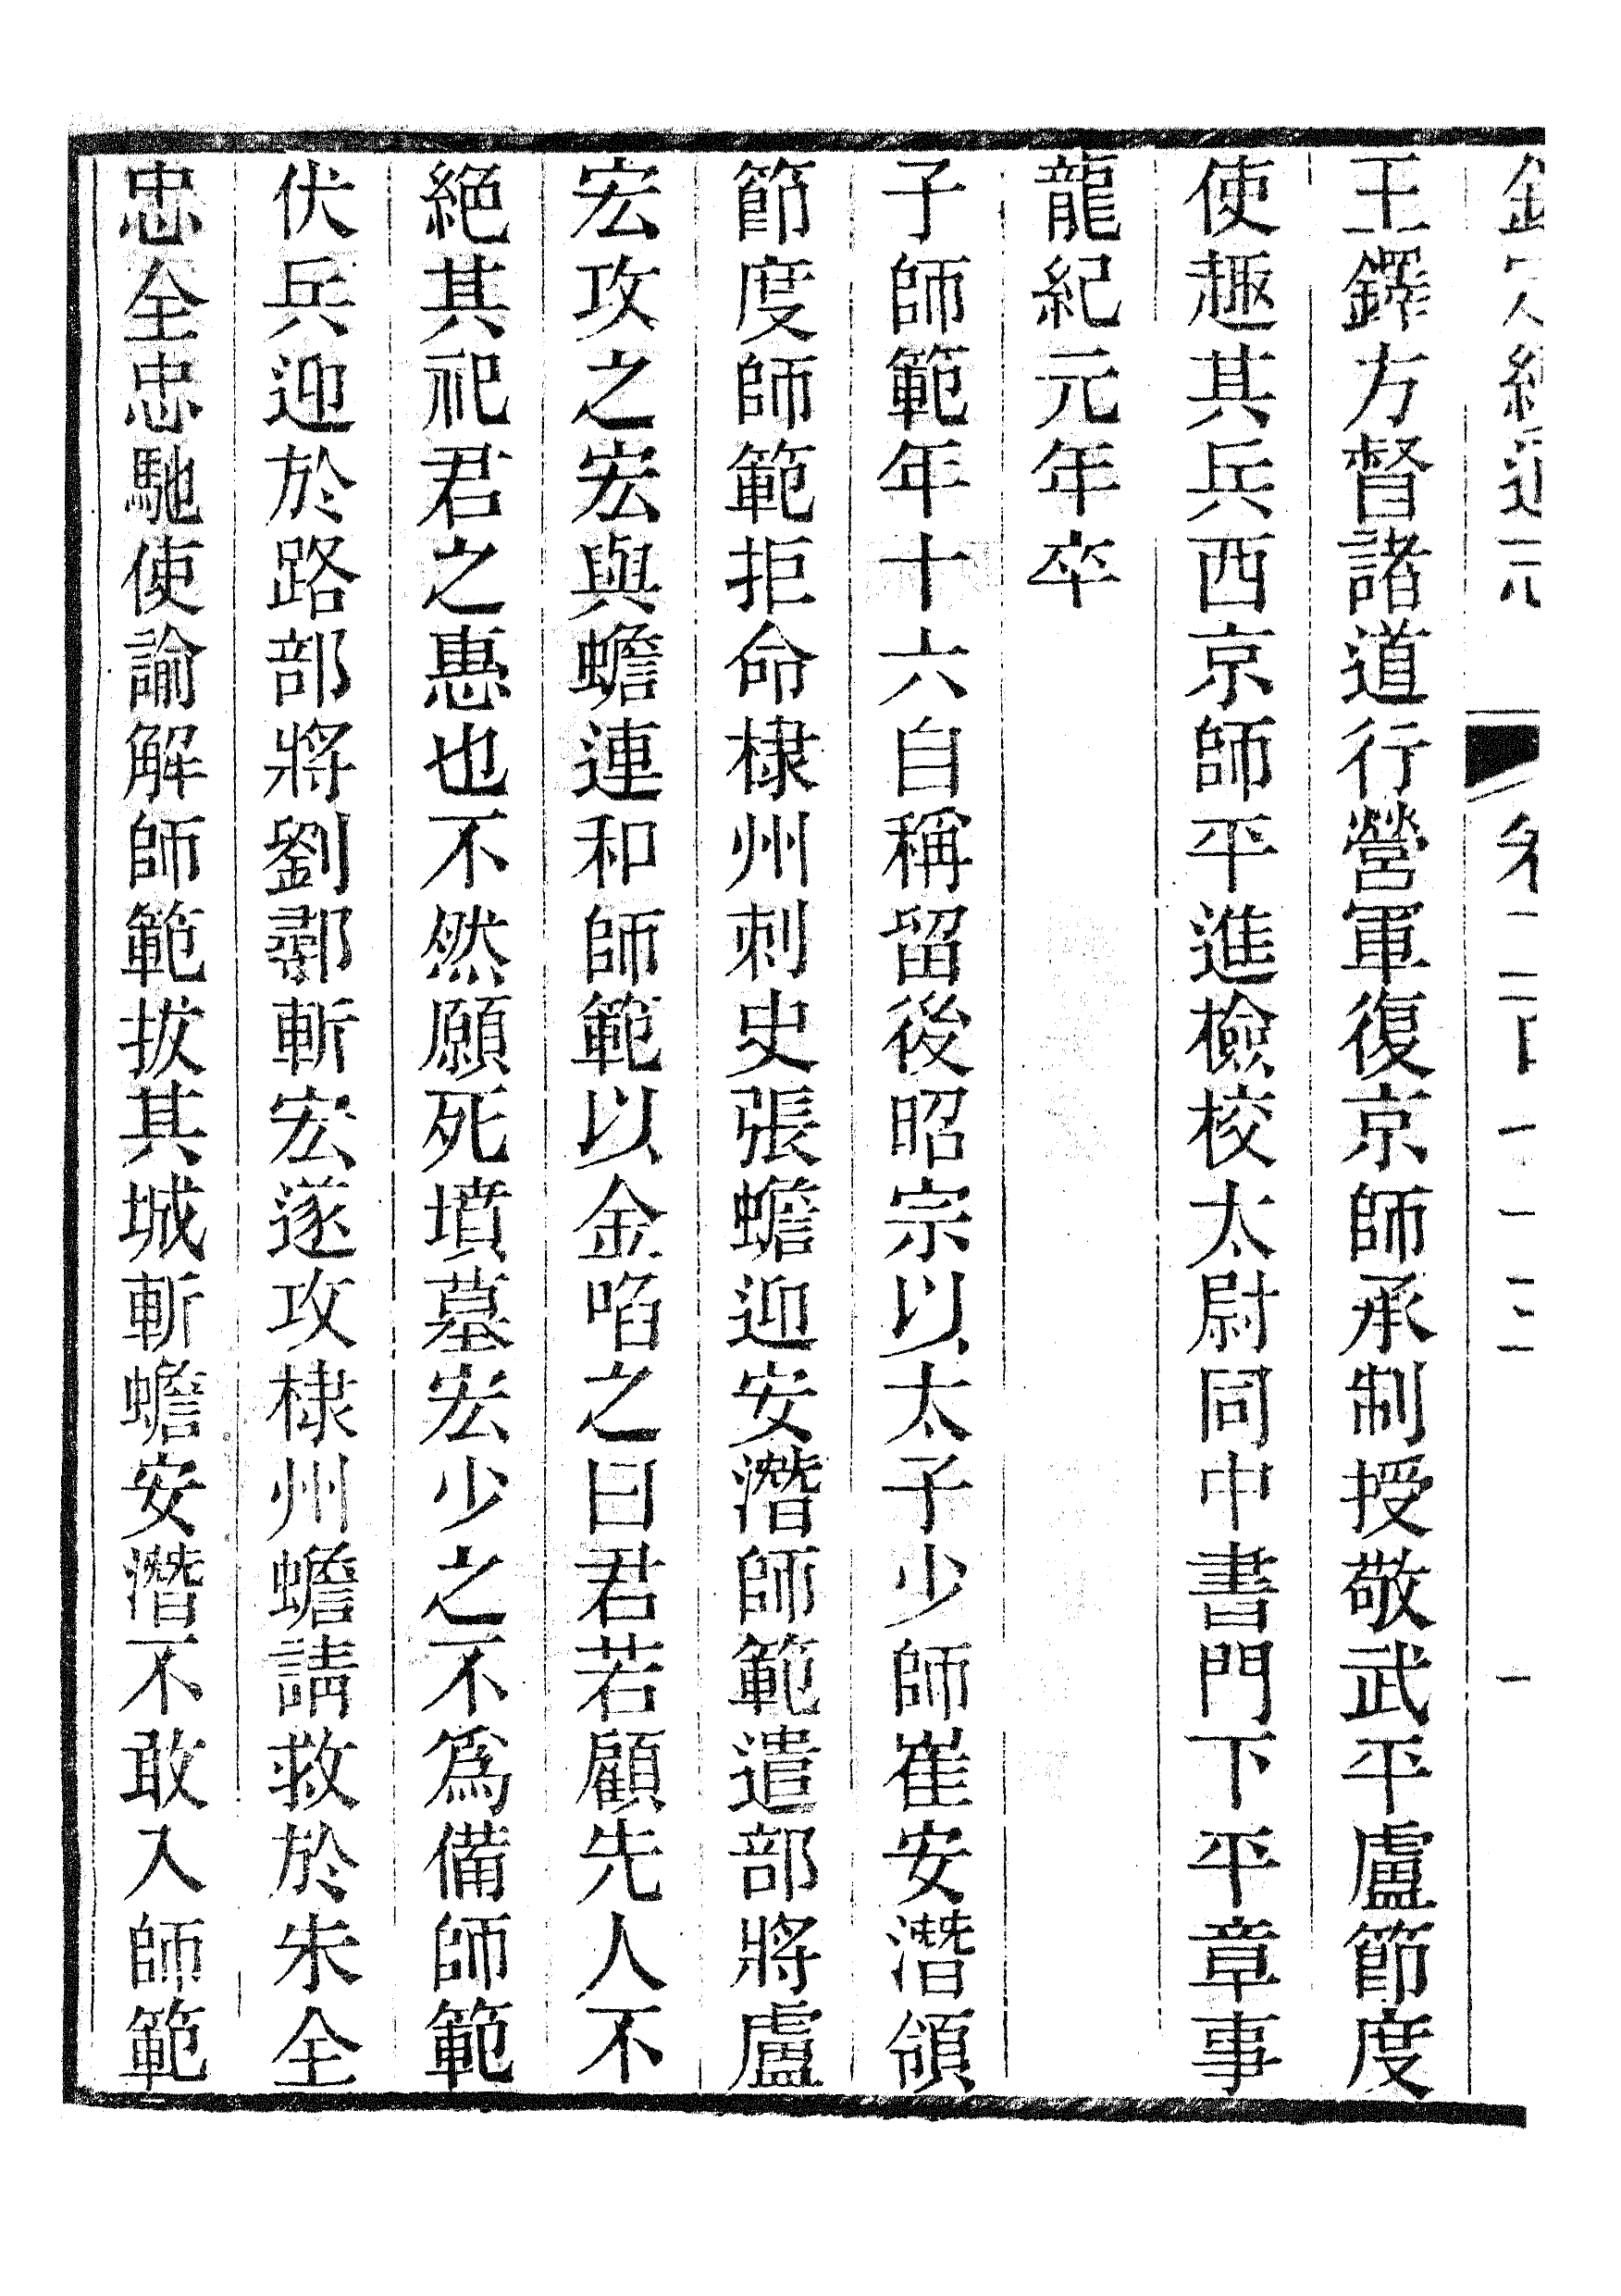 王鐸方督諸道行營軍復京師承制授敬武平盧節度
使趣其兵西京師平進檢校太尉同中書門下平章事
龍紀元年卒
子師範年十六自稱留後昭宗以太子少師崔安潛領
節度師範拒命棣州刺史張蟾迎安潛師範遣部將盧
宏攻之宏與蟾連和師範以金啗之曰君若顧先人不
絕其祀君之惠也不然願死墳墓宏少之不爲備師範
伏兵迎於路部將劉鄩斬宏遂攻棣州蟾請救於朱全
忠全忠馳使諭解師範拔其城斬蟾安潛不敢入師範